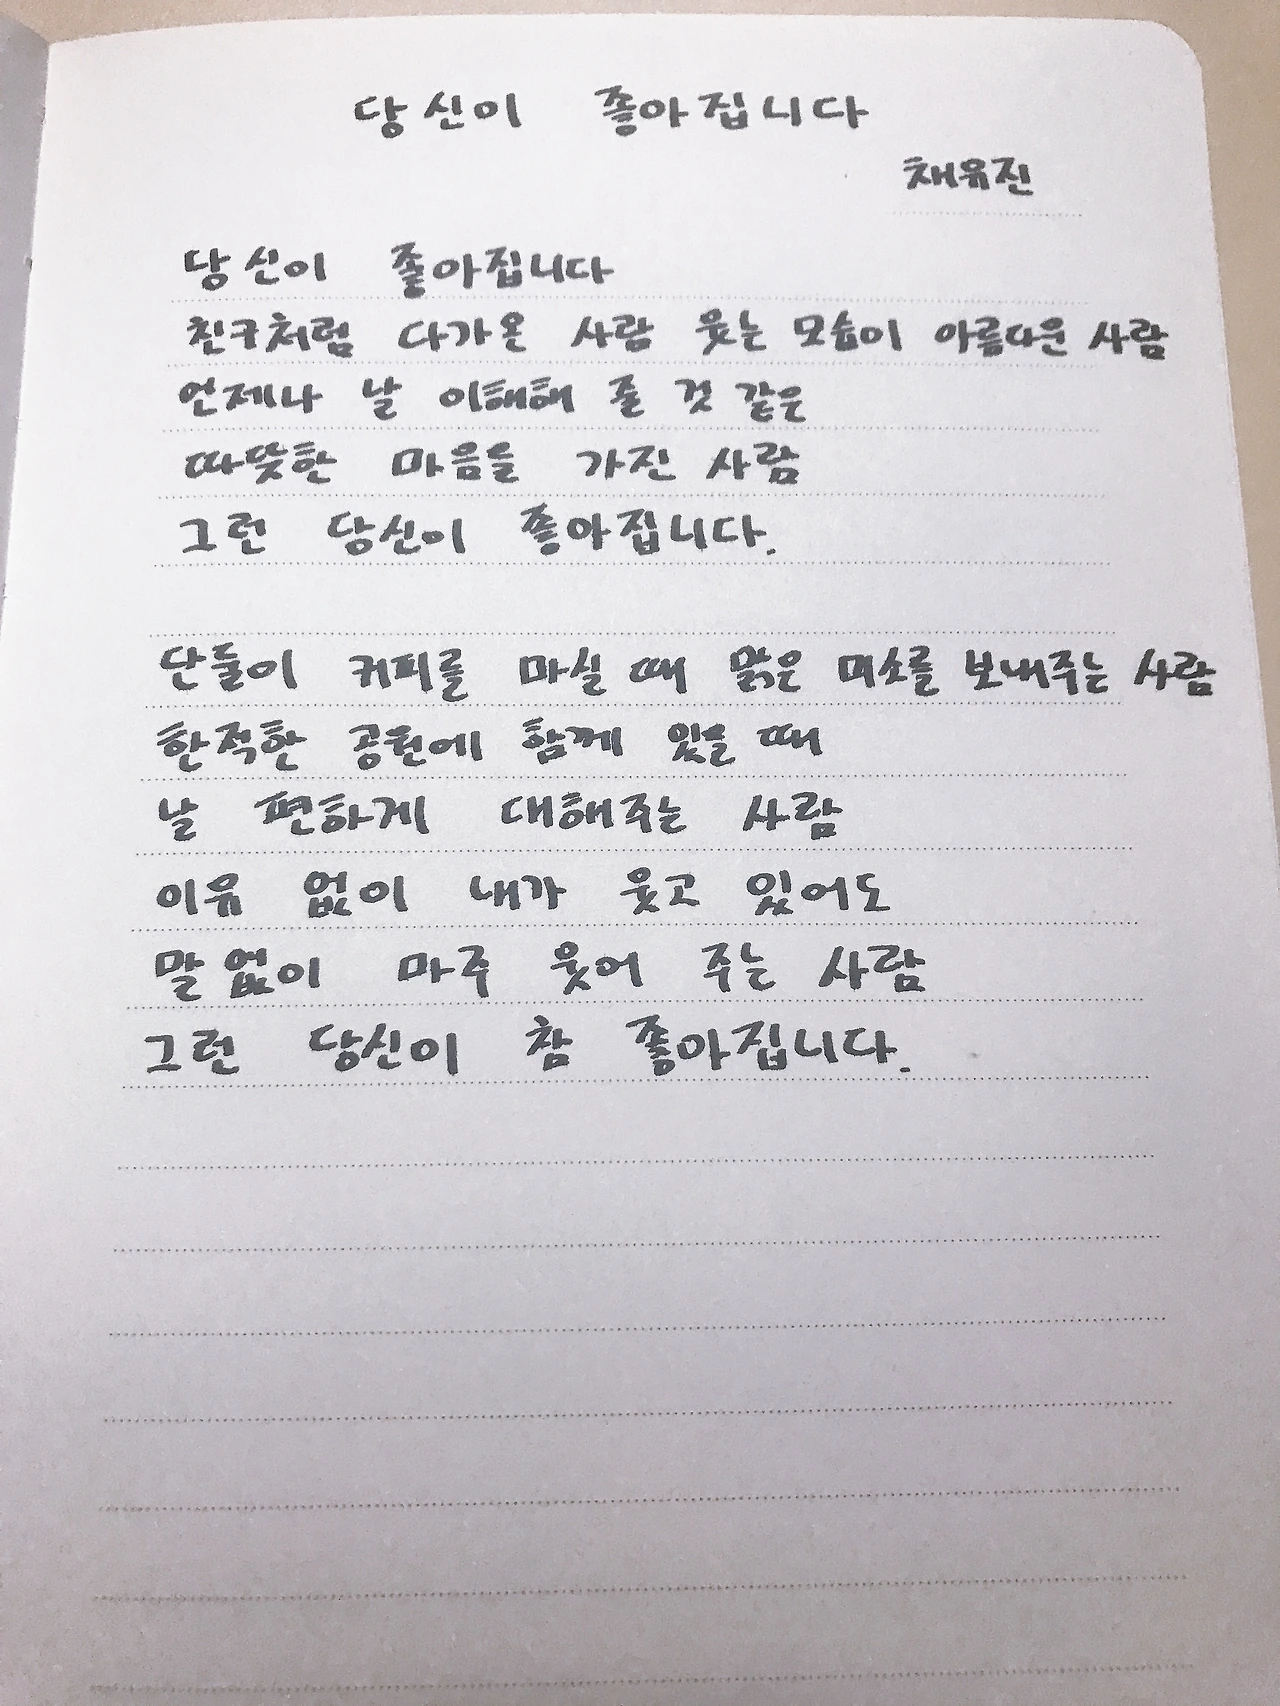 당신이 좋아집니다
채유진
당신이 좋아집니다
친구처럼 다가온 사람 웃는 모습이 아름다운 사람
언제나 날 이해해 줄 것 같은
따뜻한 마음을 가진 사람
그런 당신이 좋아집니다.
단둘이 커피를 마실 때 맑은 미소를 보내주는 사람
한적한 공원에 함께 있을 때
날 편하게 대해주는 사람
이유 없이 내가 웃고 있어도
말없이 마주 웃어 주는 사람
그런 당신이 참 좋아집니다.